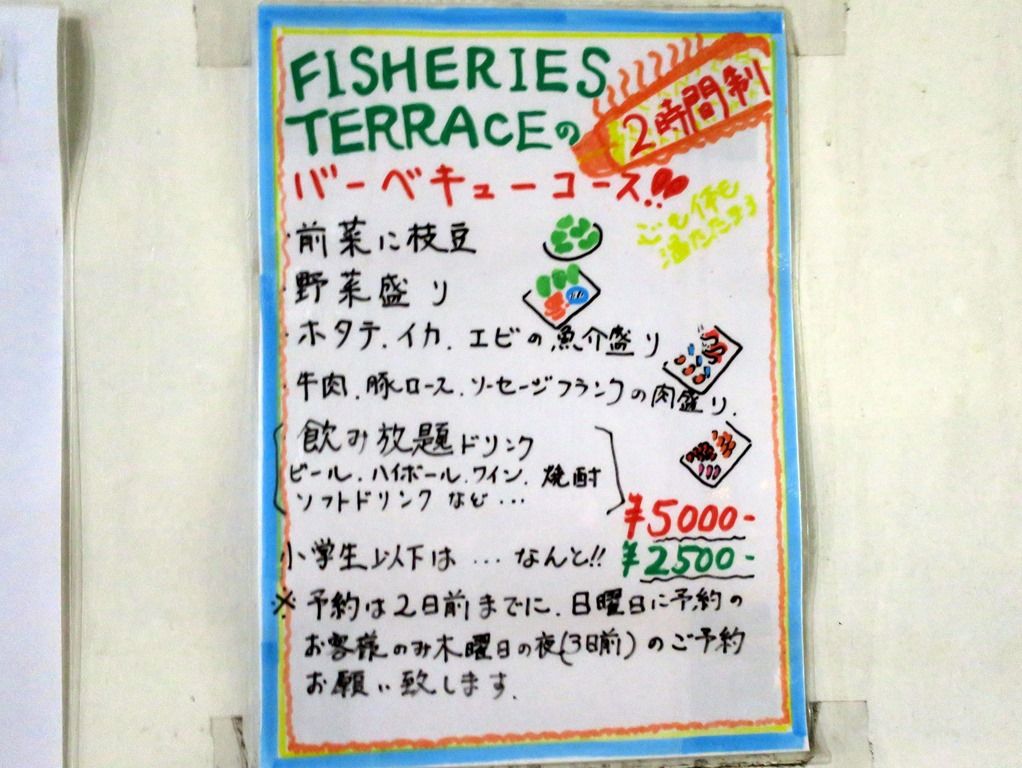 FISHERIES
TERRACEの
2時間制
バーベキューコース!!
心も体も
満たたまる
・前菜に枝豆
・野菜盛り
・ホタテ、イカ、エビの魚介盛り
・牛肉、豚ロース、ソーセージフランクの肉盛り、
飲み放題ドリンク
ビール、ハイボール、ワイン、焼酎
ソフトドリンク など…
¥5000-
小学生以下は…なんと!! ¥2500-
※予約は2日前までに、日曜日に予約の
お客様のみ木曜日の夜(3日前)のご予約
お願い致します。